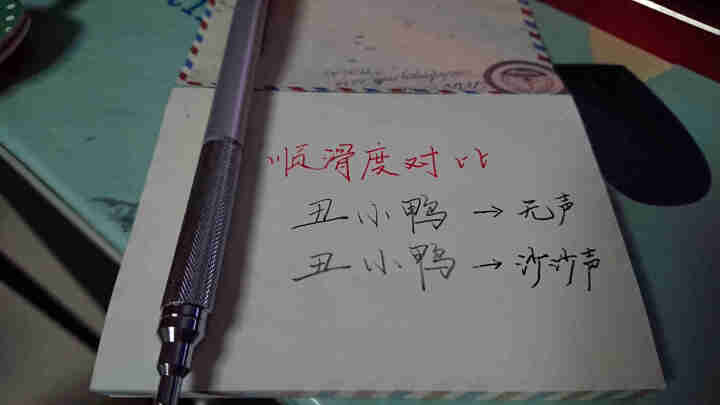 顺滑度对比
丑小鸭→无声
丑小鸭→沙沙声